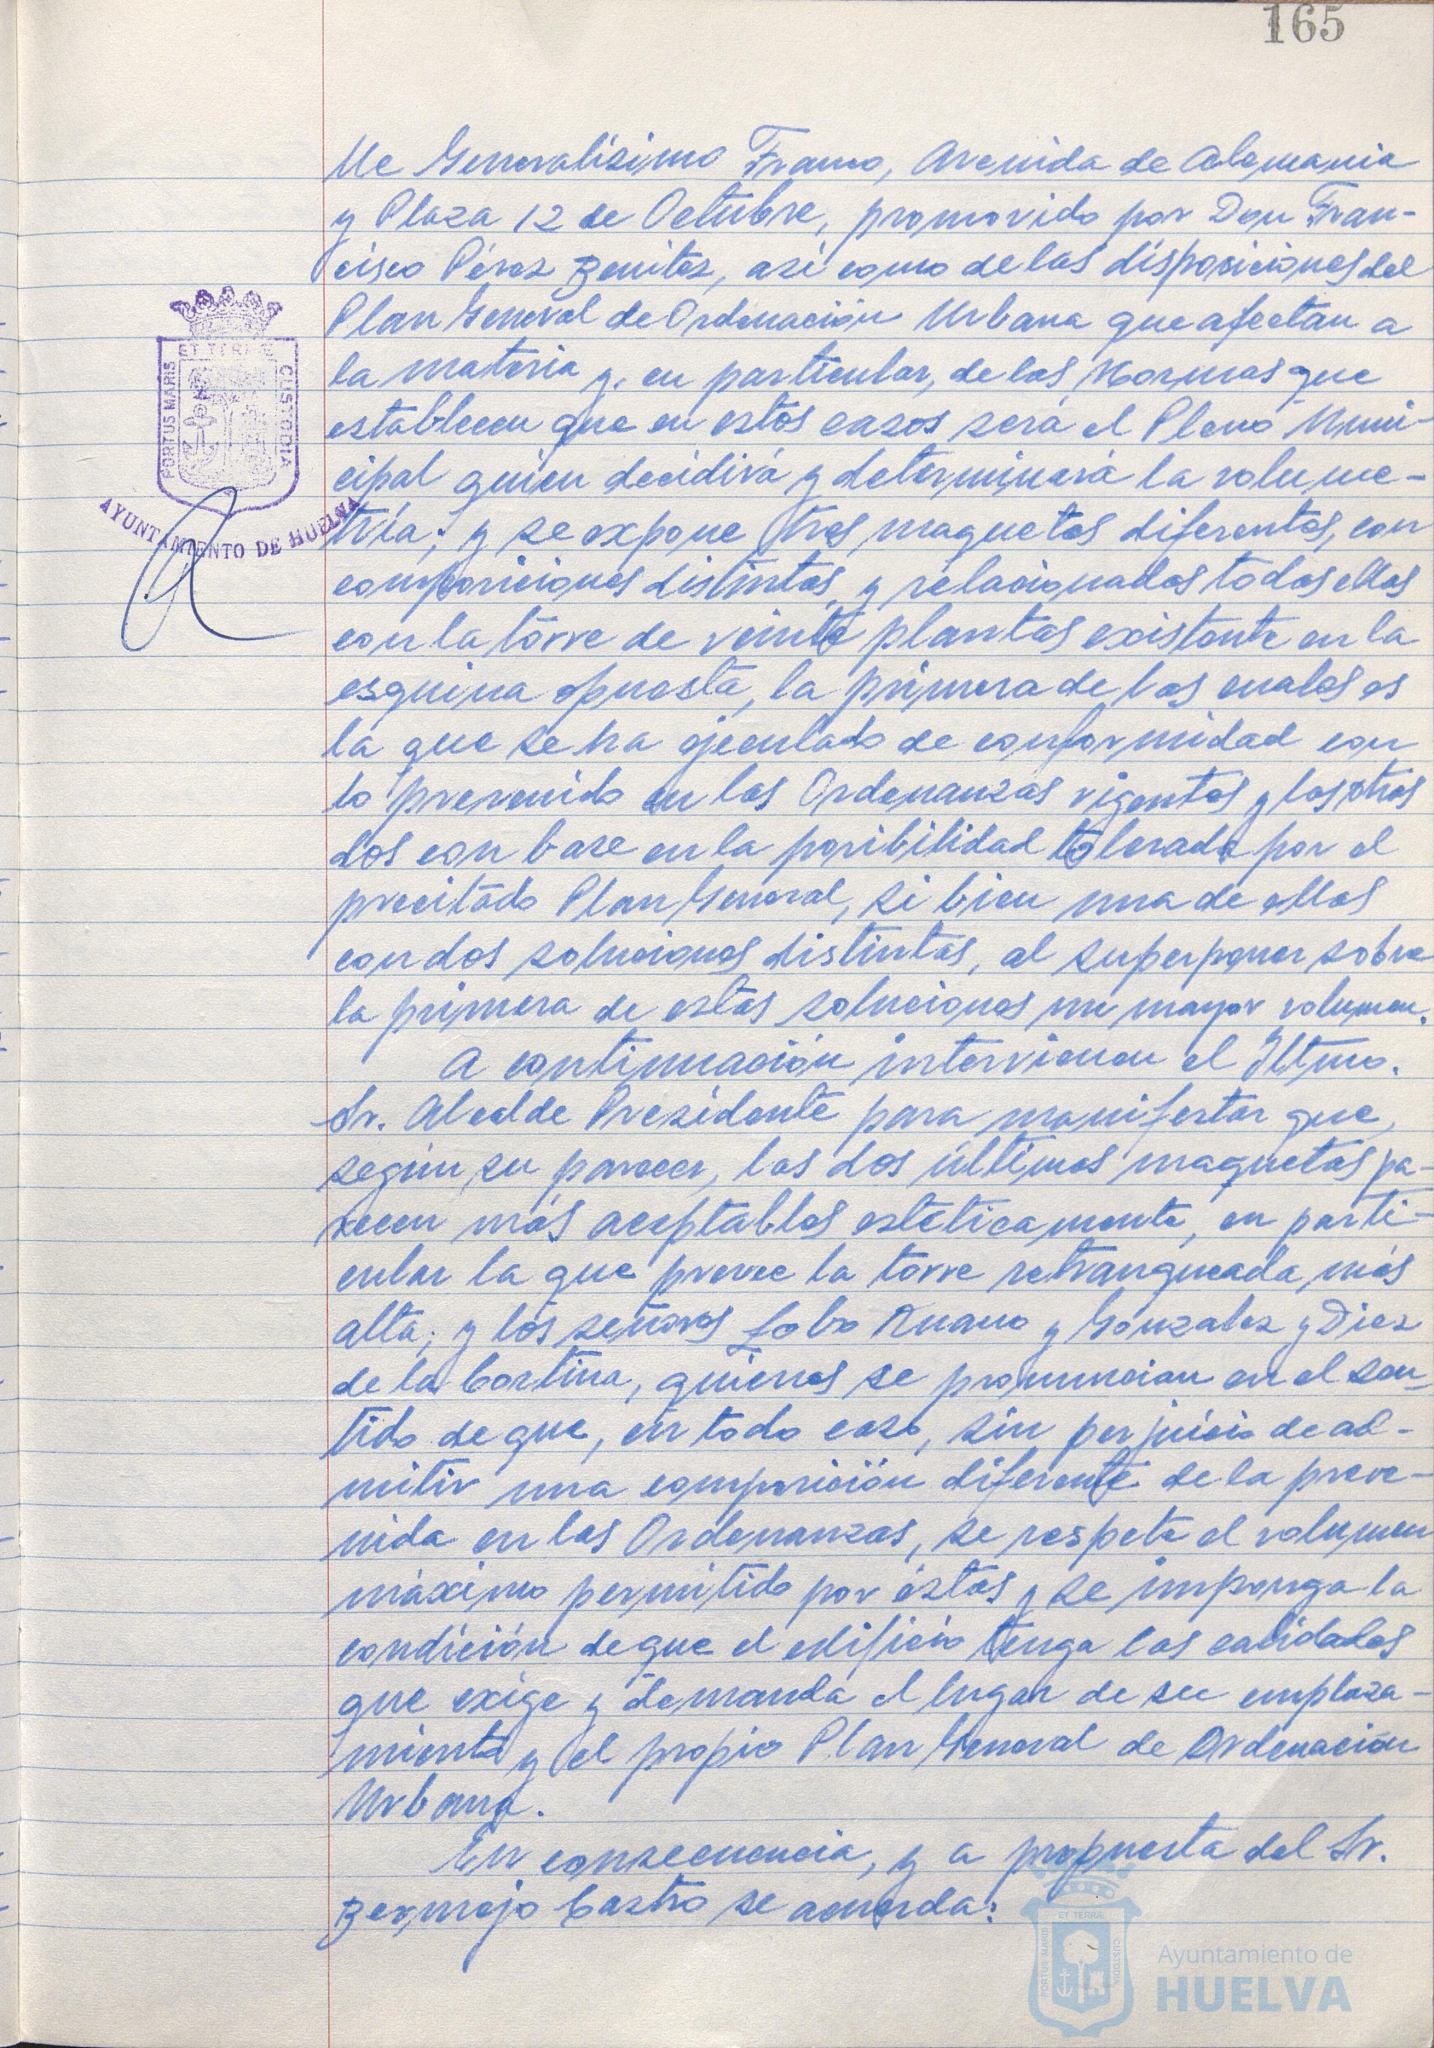 165
lle Generalísimo Franco, Avenida de Alemania
y Plaza 12 de Octubre, promovido por Don Fran-
cisco Pérez Benitez, así como de las disposiciones del
Plan General de Ordenación Urbana que afectan a
la materia y, en particular, de las Normas que
establecen que en estos casos será el Pleno Muni-
cipal quien decidirá y determinará la volume-
tría; y se expone tres maquetas diferentes, con
composiciones distintas, y relacionadas todas ellas
con la torre de veinte plantas existente en la
esquina opuesta, la primera de las cuales es
la que se ha ejecutado de conformidad con
lo prevenido en las Ordenanzas vigentes y las otras
dos con base en la posibilidad tolerada por el
precitado Plan General, si bien una de ellas
con dos soluciones distintas, al superponer sobre
la primera de estas soluciones un mayor volumen.
A continuación intervienen el Iltmo.
Sr. Alcalde Presidente para manifestar que,
según su parecer, las dos últimas maquetas pa-
recen más aceptables estéticamente, en parti-
cular la que prevee la torre retranqueada más
alta; y los señores Lobo Ruano y González y Diez
de la Cortina, quienes se pronuncian en el sen-
tido de que, en todo caso, sin perjuicio de ad-
mitir una composición diferente de la preve-
nida en las Ordenanzas, se respete el volumen
máximo permitido por éstas y se imponga la
condición de que el edificio tenga las calidades
que exige y demanda el lugar de su emplaza-
miento y el propio Plan General de Ordenación
Urbana.
En consecuencia, y a propuesta del Sr.
Bermejo Castro se acuerda:
PORTUS MARIS ET TERRAE CUSTODIA
AYUNTAMIENTO DE HUELVA
PORTUS MARIS ET TERRAE CUSTODIA
Ayuntamiento de
HUELVA